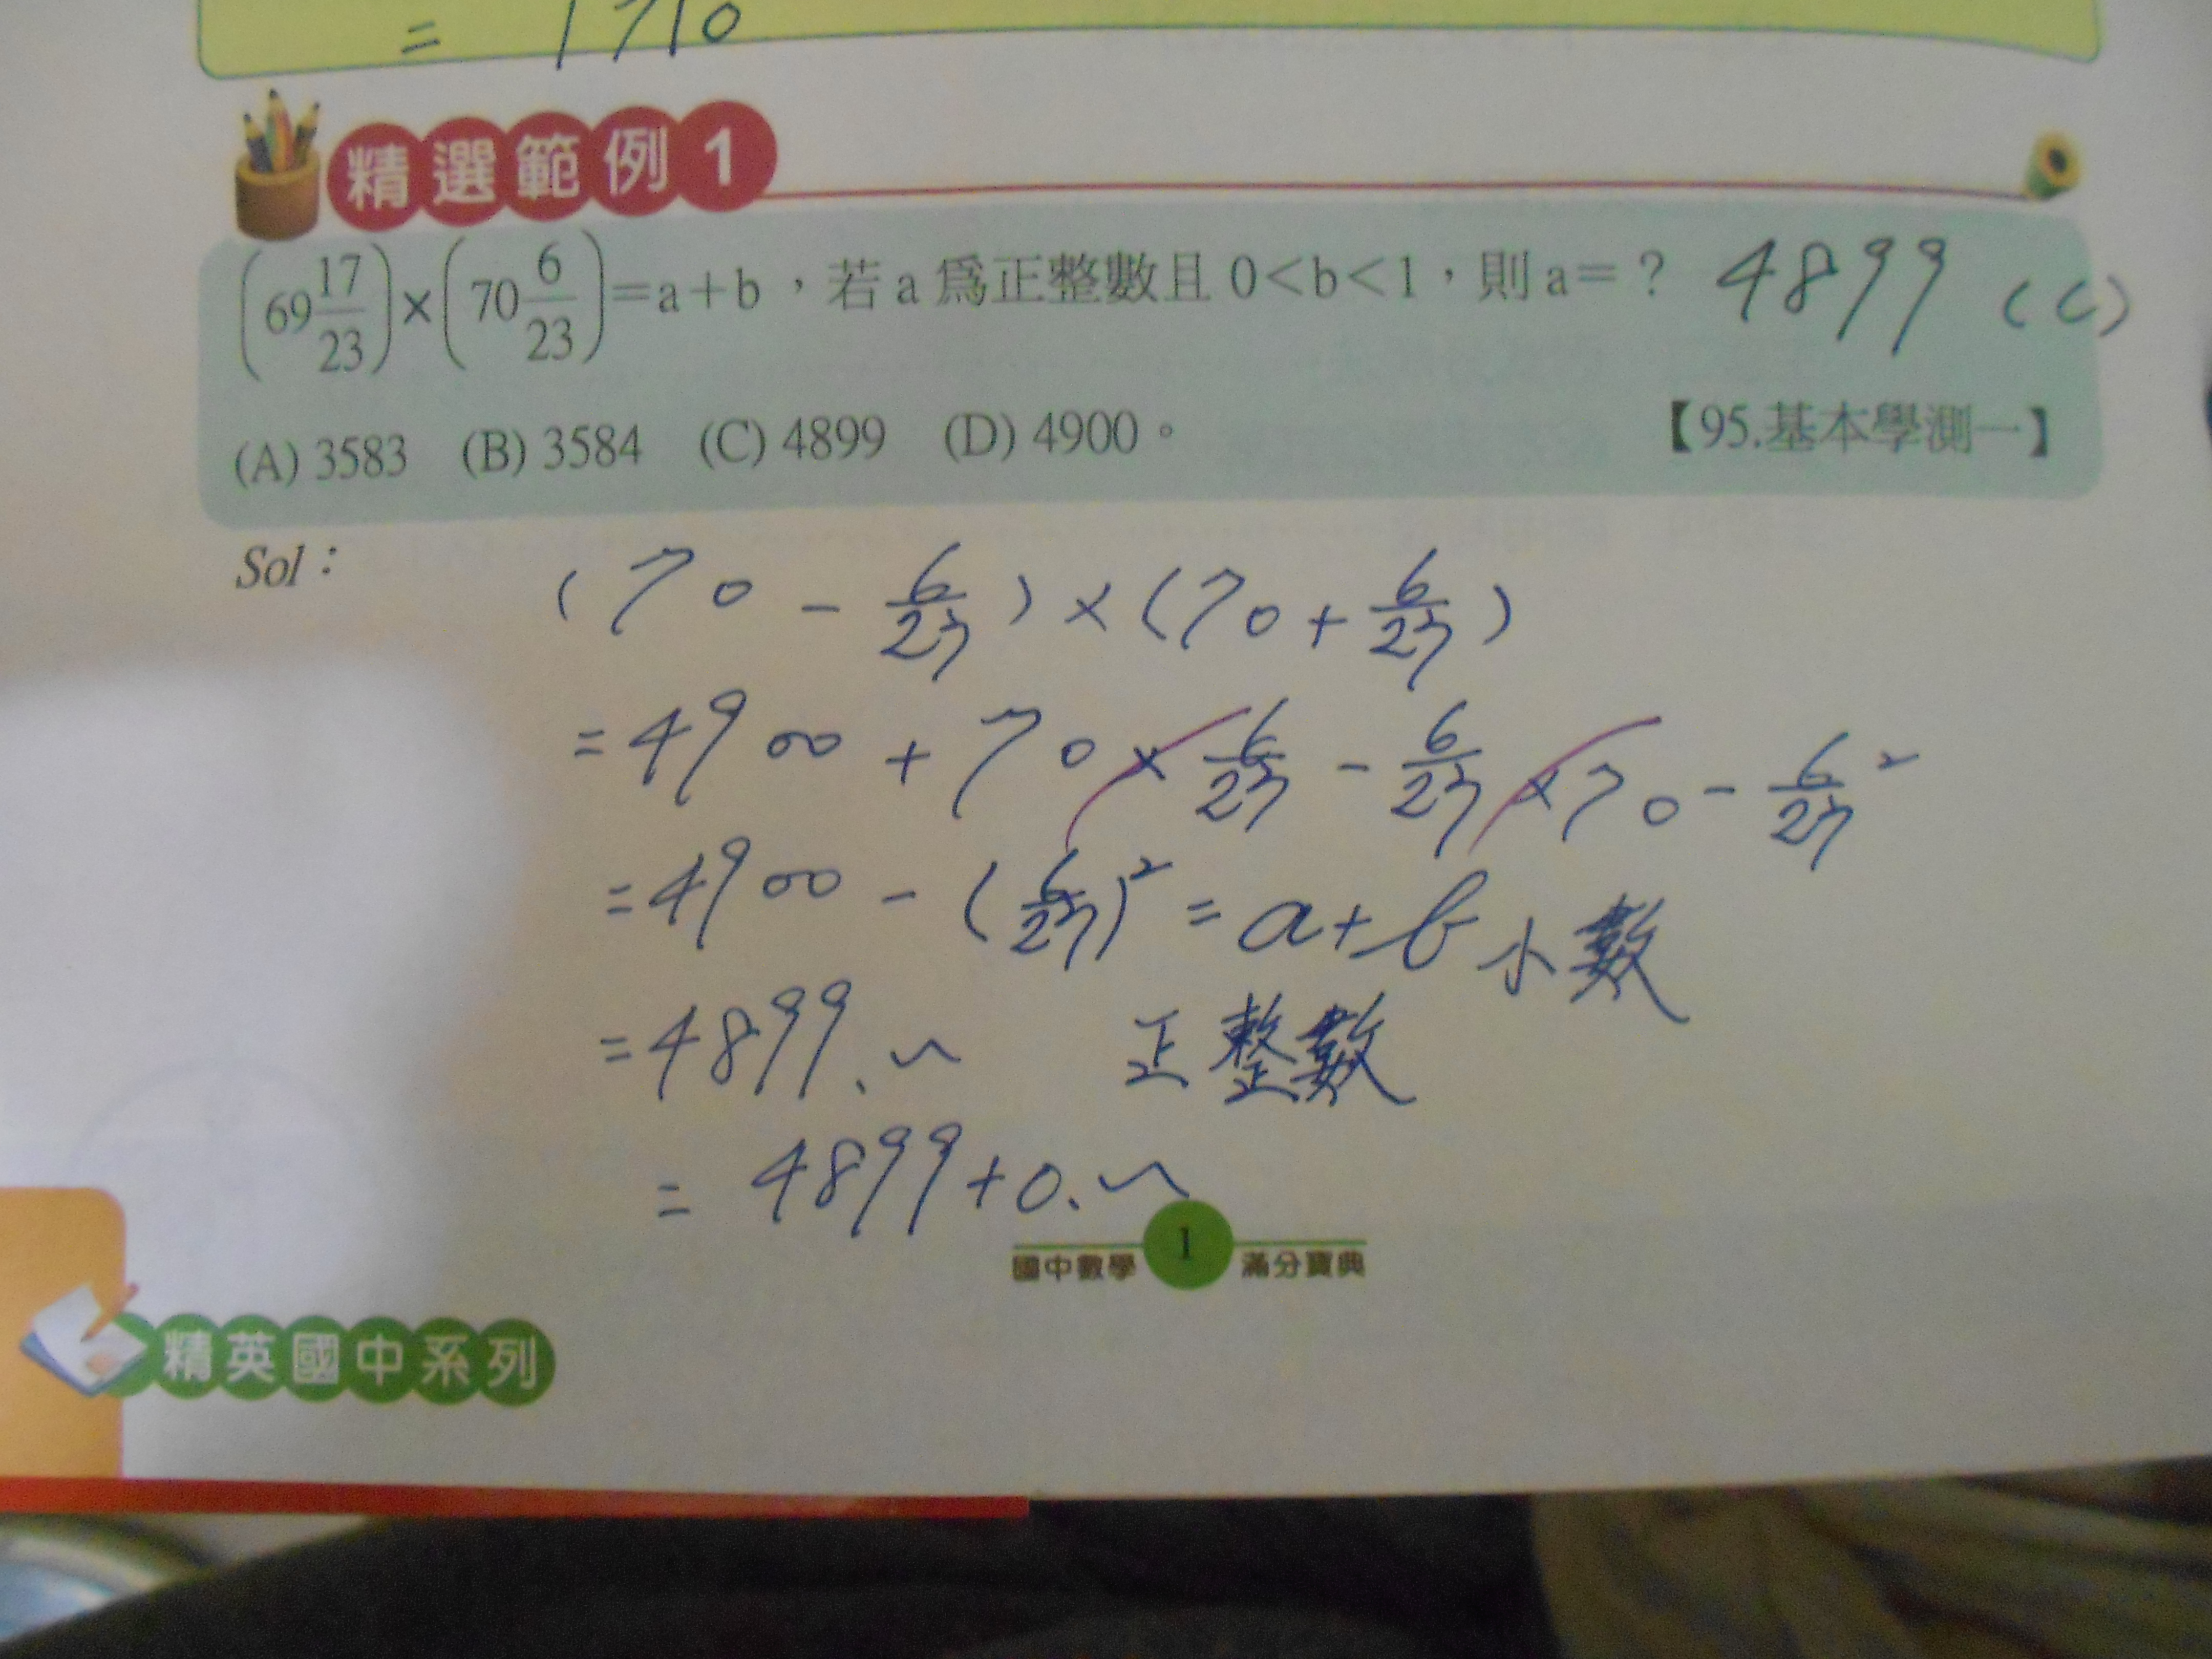 = 1710
精選範例1
(69 17/23)×(70 6/23)=a+b，若a爲正整數且0<b<1，則a=？ 4899 (C)
(A) 3583 (B) 3584 (C) 4899 (D) 4900。 【95.基本學測一】
Sol：
(70 - 6/23)×(70 + 6/23)
= 4900 + 70 × 6/23 - 6/23 × 70 - 6/23²
= 4900 - (6/23)² = a + b 小數
= 4899.~ 正整數
= 4899 + 0.~
國中數學 1 滿分寶典
精英國中系列